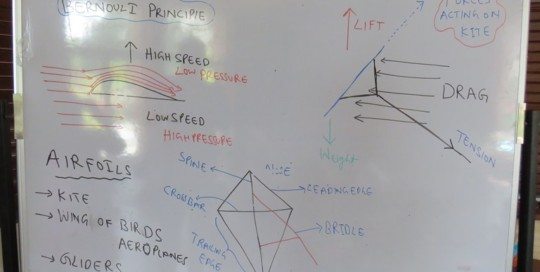 BERNOULI PRINCIPLE
HIGH SPEED
LOW PRESSURE
LOW SPEED
HIGH PRESSURE
FORCES
ACTING ON
KITE
LIFT
DRAG
TENSION
Weight
AIRFOILS
→ KITE
→ WING OF BIRDS
AEROPLANES
→ GLIDERS
SPINE
NOSE
LEADING EDGE
CROSSBAR
BRIDLE
TRAILING
EDGE